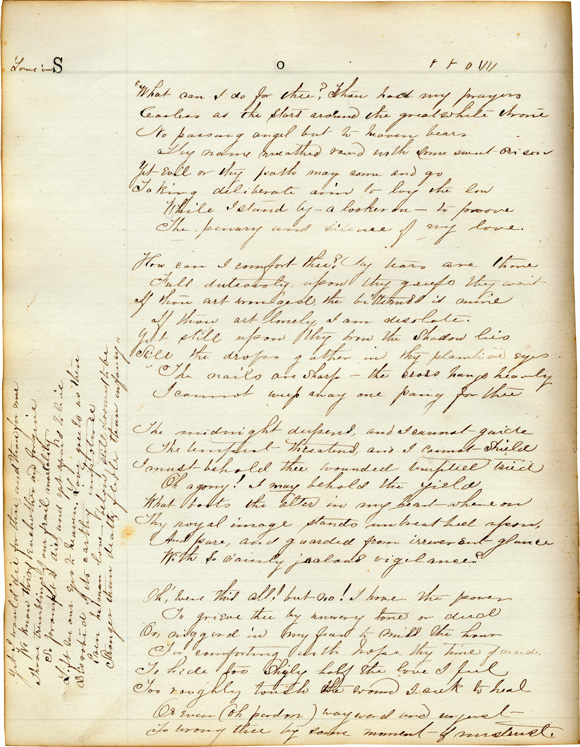 Love in S o
"What can I do for thee? Thou hast my prayers
Ceaseless as the stars around the great white throne
No passing angel but to heaven bears
Thy name breathed round with some sweet orison
Yet evil on thy path may come and go
Taking deliberate aim to lay thee low
While I stand by - a looker on - to prove
The penury and silence of my love.
How can I comfort thee? My tears are thine
Full duteously upon thy griefs they wait
If thou art wounded the bitterness is mine
If thou art lonely I am desolate.
Yet still upon thy brow the shadow lies
Still the drops gather in thy plaintive eyes.
The nails are sharp - the cross hangs heavily
I cannot weep away one pang for thee
The midnight deepens, and I cannot guide
The tempest threatens, and I cannot shield
I must behold thee wounded tempted tried
Oh agony! I may behold thee yield
What boots the altar in my heart whereon
Thy royal image stands unbreathed upon,
And pure, and guarded from irreverent glance
With so saintly jealous vigilance?
Oh, were this all! but no! I have the power
To grieve thee by unwary tone or deed
Or niggard in my fear to the hour
For comforting with hope thy time of need.
To hide too shyly half the love I feel
Too roughly touch the wound I seek to heal
Or even (Oh pardon) wayward and unjust
To wrong thee by some moment of mistrust.
Yet it would die for thee and thou for me
We know this, Enshrother and forgive
These tremblings of our frail mortality
So prompt to die and yet afraid to live
Lift we our eyes to heaven, Love greets us there
Absolved of its earthly
Even human love below, still found to be
Stronger than death, feebler than infancy"